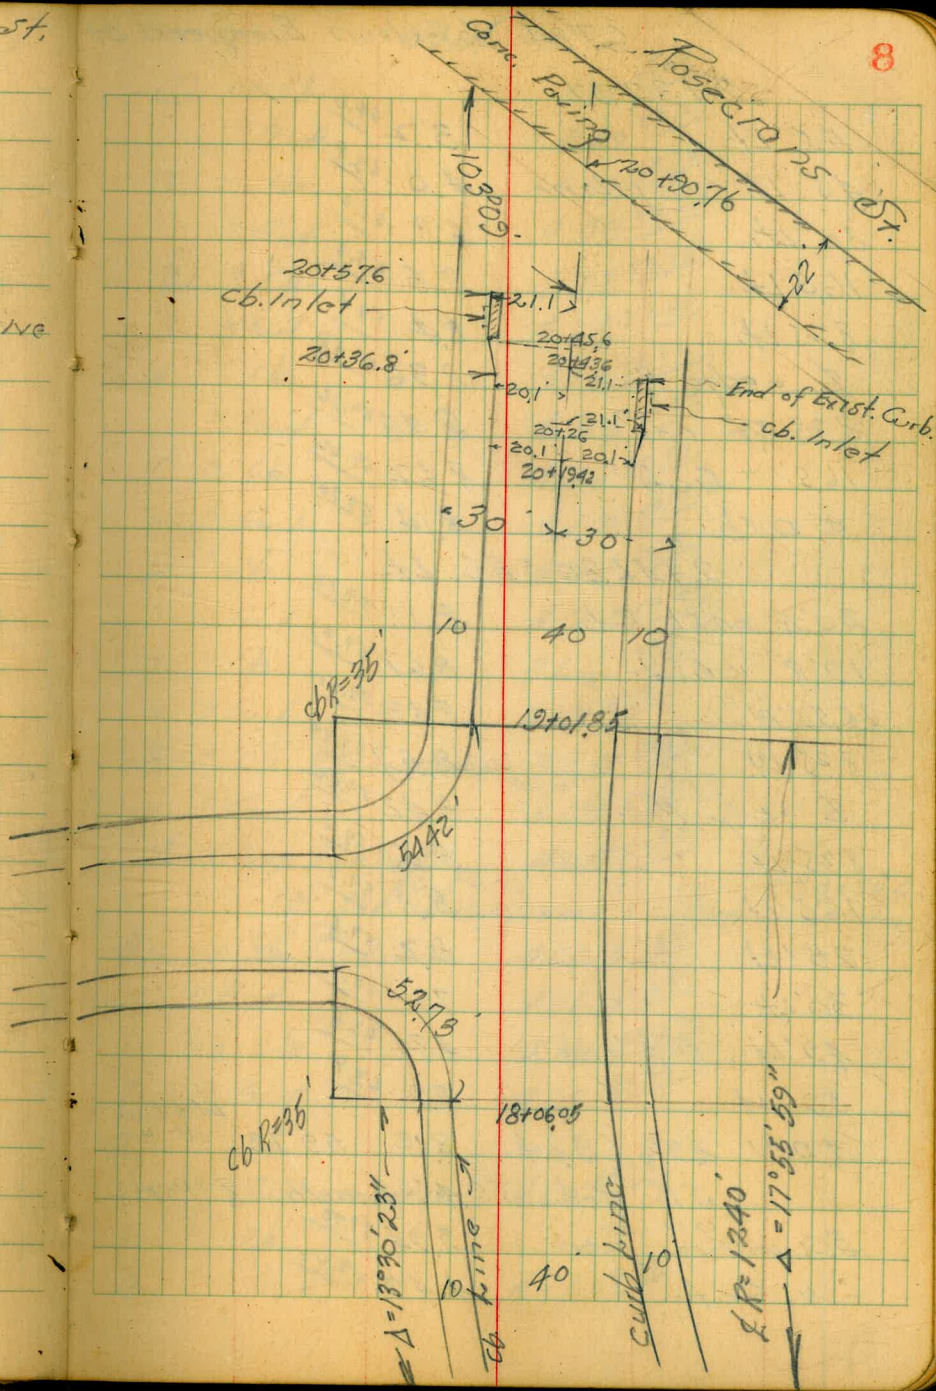 st.
8
Conc. Paving
Rosecrans St.
20+90.76
22
103.09
20+57.6
cb. Inlet
21.1
20+45.6
20+43.6
20+36.8
21.1
20.1
End of Exist. Curb.
cb. Inlet
21.1
20+26
20.1
20.1
20+19.42
30
30
10
40
10
cb R=35'
19+01.85
54.42'
52.73'
cb R=35'
18+06.05
Δ=13°30'23"
10
cb Line
40
Curb Line
10
₵ R=1240'
Δ=17°55'59"